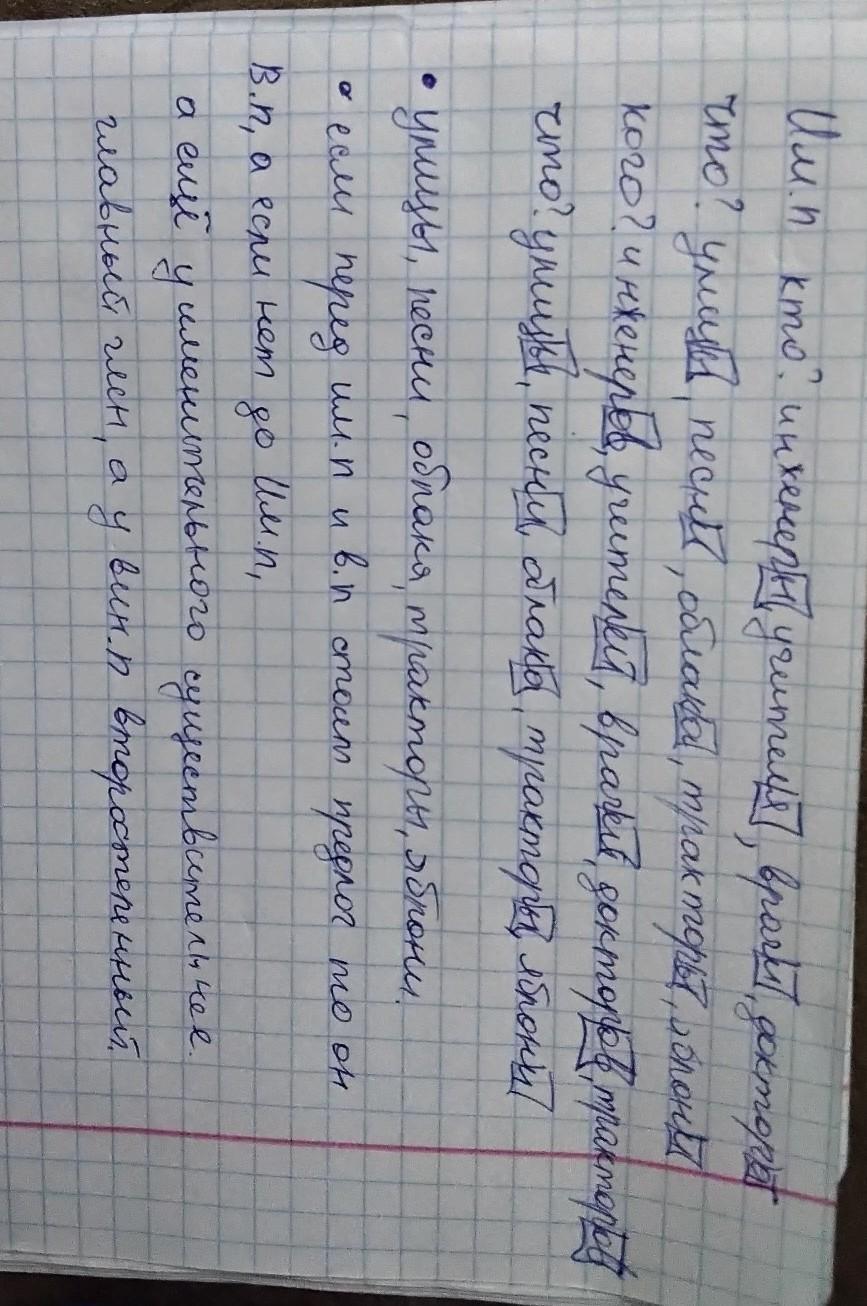 Им.п кто? инженеры учителя, врачи, докторы
что? улицы, песни, облака, тракторы, яблони
кого? инженеров, учителей, врачей, докторов, тракторов
что? улицы, песни, облака, тракторы, яблони
• улицы, песни, облака, тракторы, яблони.
• если перед им.п и в.п стоит предлог то он
В.п, а если нет до Им.п,
а ещё у именительного существительное.
главный член, а у вин.п второстепенный.